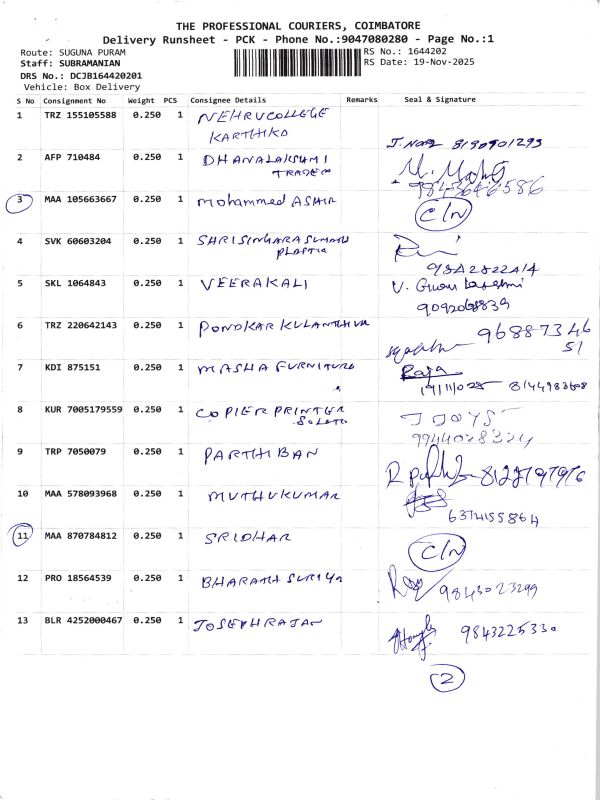 THE PROFESSIONAL COURIERS, COIMBATORE
Delivery Runsheet - PCK - Phone No.:9047080280 - Page No.:1
Route: SUGUNA PURAM RS No.: 1644202
Staff: SUBRAMANIAN RS Date: 19-Nov-2025
DRS No.: DCJB164420201
Vehicle: Box Delivery
S No Consignment No Weight PCS Consignee Details Remarks Seal & Signature
1 TRZ 155105588 0.250 1 NEHRUCOLLEGE
KARTHIKO
2 AFP 710484 0.250 1 DHANALAKSHMI
TRADER
3 MAA 105663667 0.250 1 Mohammed ASHIR
C/N
4 SVK 60603204 0.250 1 SHRISINGARA
PLASTIC
5 SKL 1064843 0.250 1 VEERAKALI
6 TRZ 220642143 0.250 1
96887346
51
7 KDI 875151 0.250 1 MASHA FURNITURE Raja
19/11/025 8144983608
8 KUR 7005179559 0.250 1 COPIER PRINTER
9 TRP 7050079 0.250 1 PARTHIBAN
10 MAA 578093968 0.250 1 MUTHUKUMAR
6374155864
11 MAA 870784812 0.250 1 SRIDHAR C/N
12 PRO 18564539 0.250 1 BHARATH SURIYA 9843023299
13 BLR 4252000467 0.250 1 JOSEPHRAJAN 9843225330
2